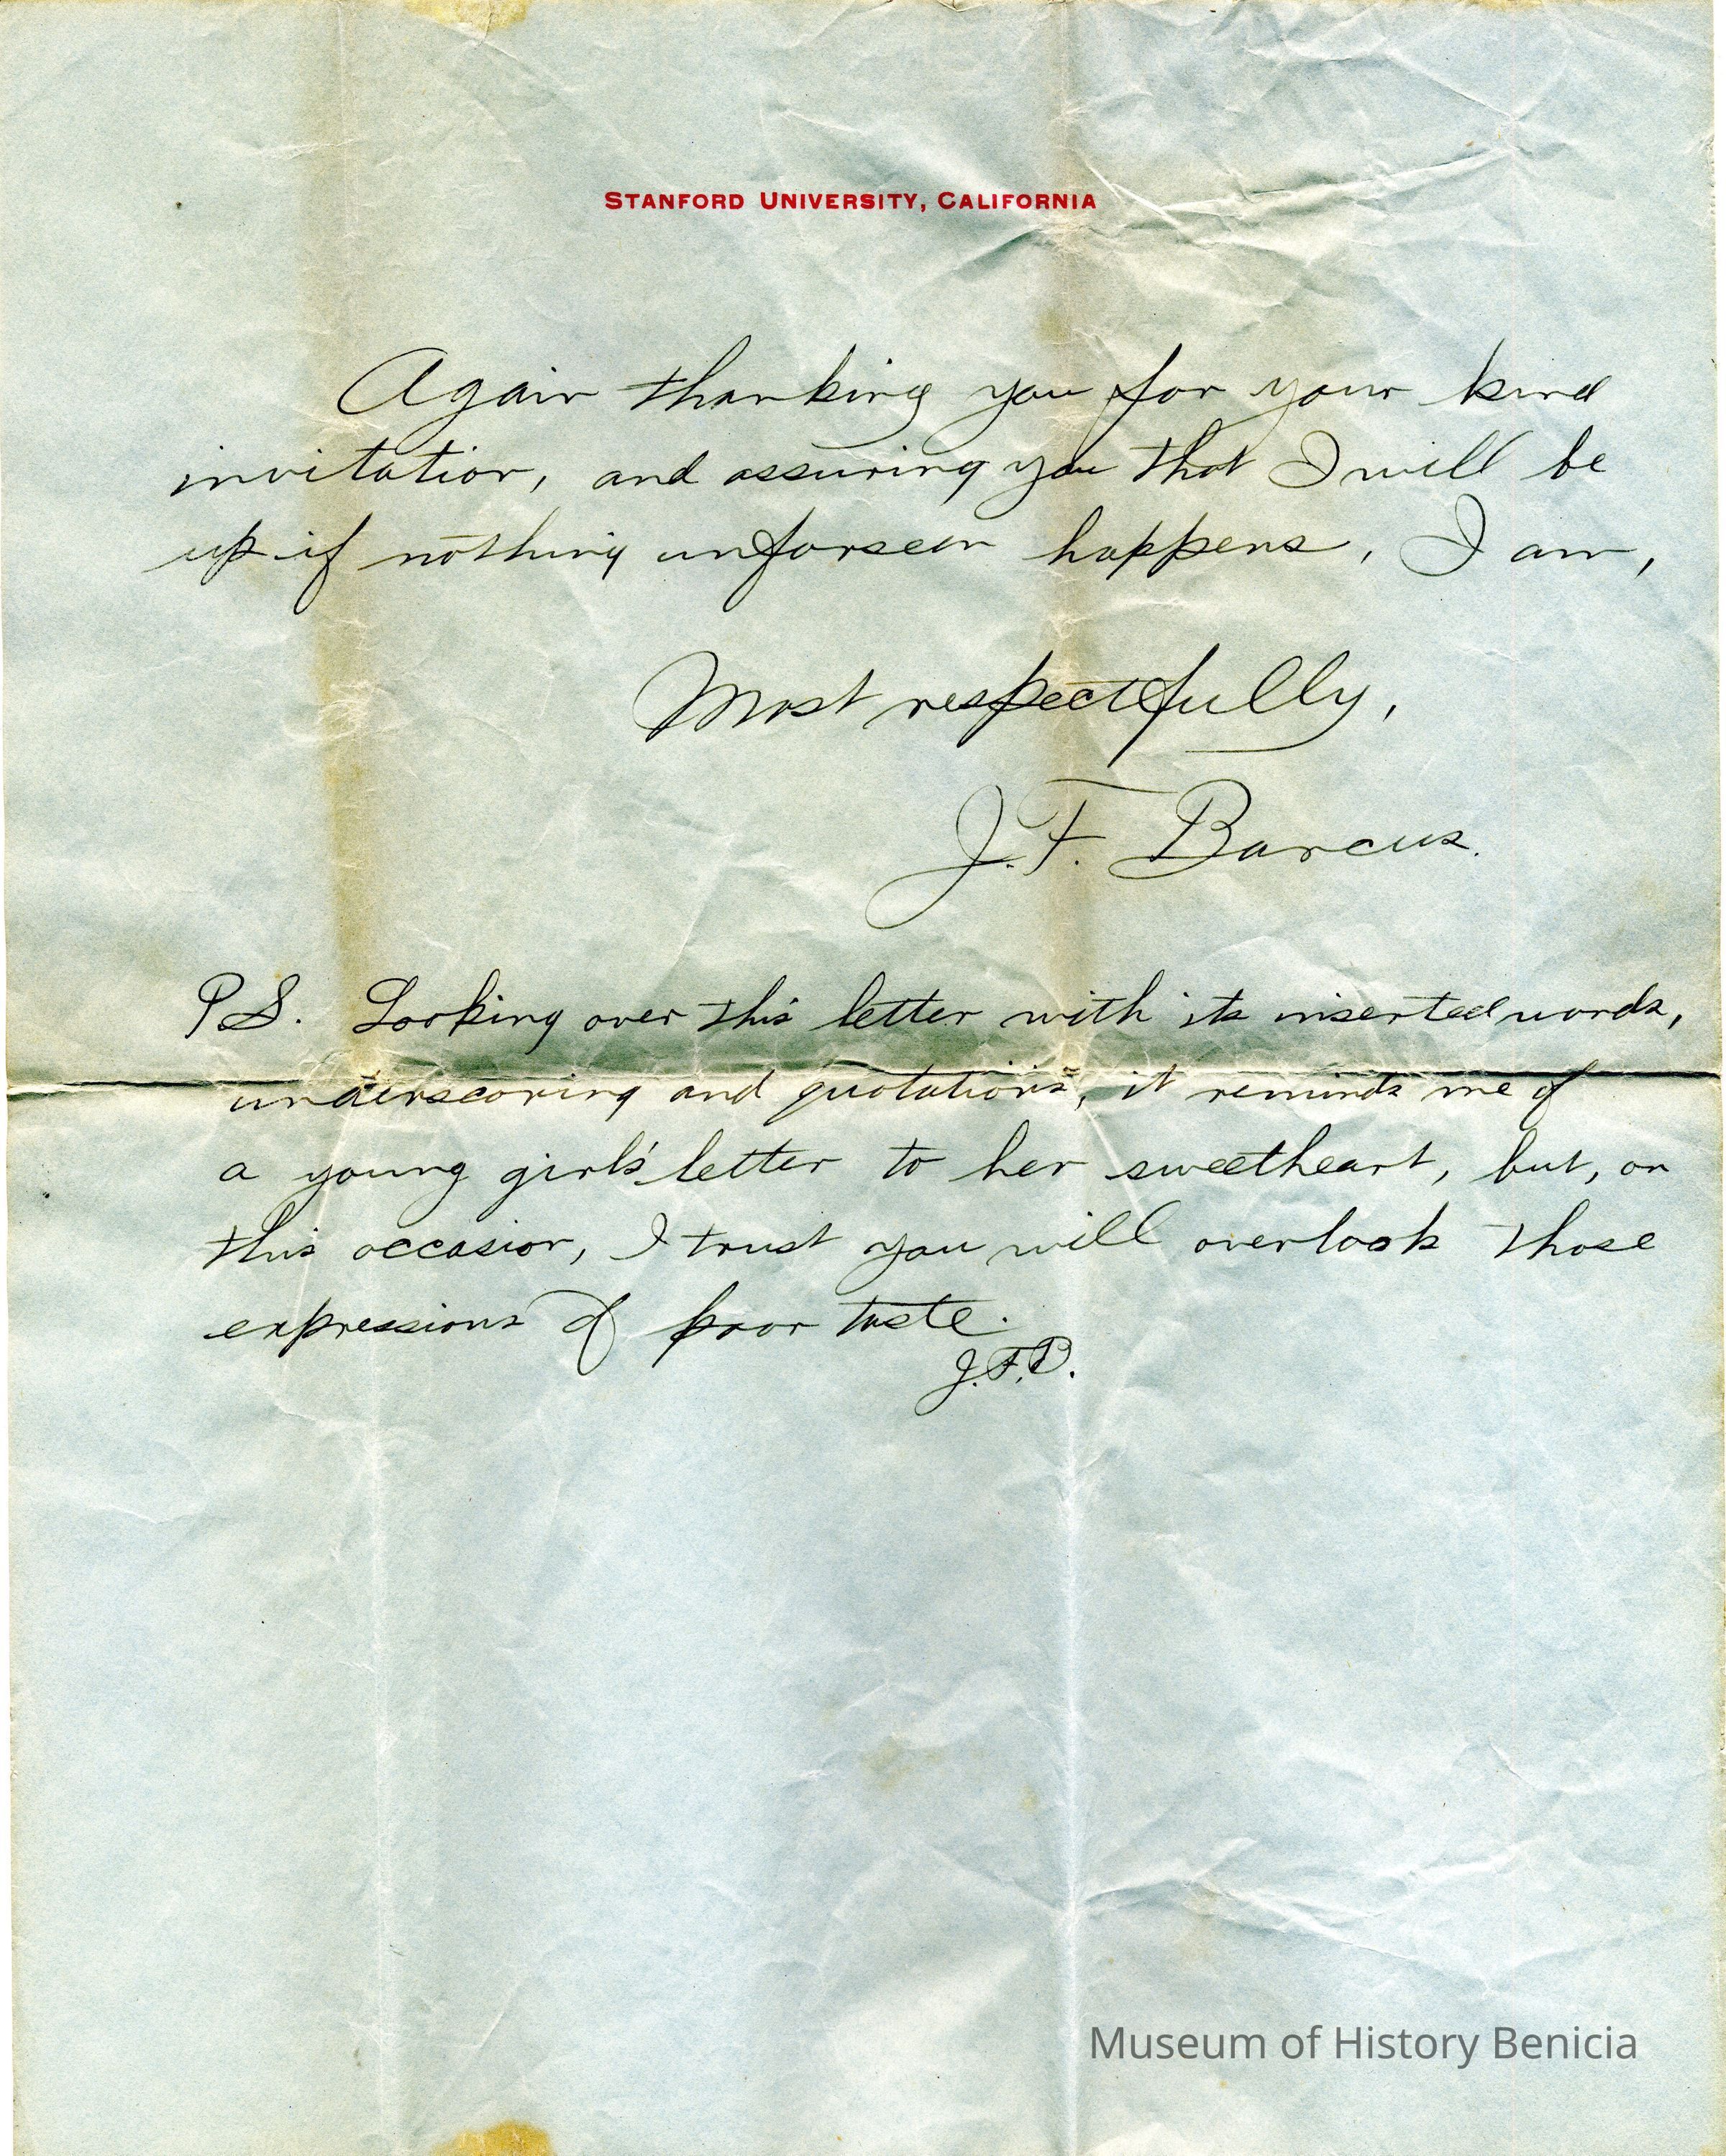 STANFORD UNIVERSITY, CALIFORNIA
Again thanking you for your kind
invitation, and assuring you that I will be
up if nothing unforseen happens, I am,
Most respectfully,
J. F. Barcus.
P.S. Looking over this letter with its inserted words,
underscoring and quotations, it reminds me of
a young girl's letter to her sweetheart, but, on
this occasion, I trust you will overlook those
expressions of poor taste.
J.F.B.
Museum of History Benicia